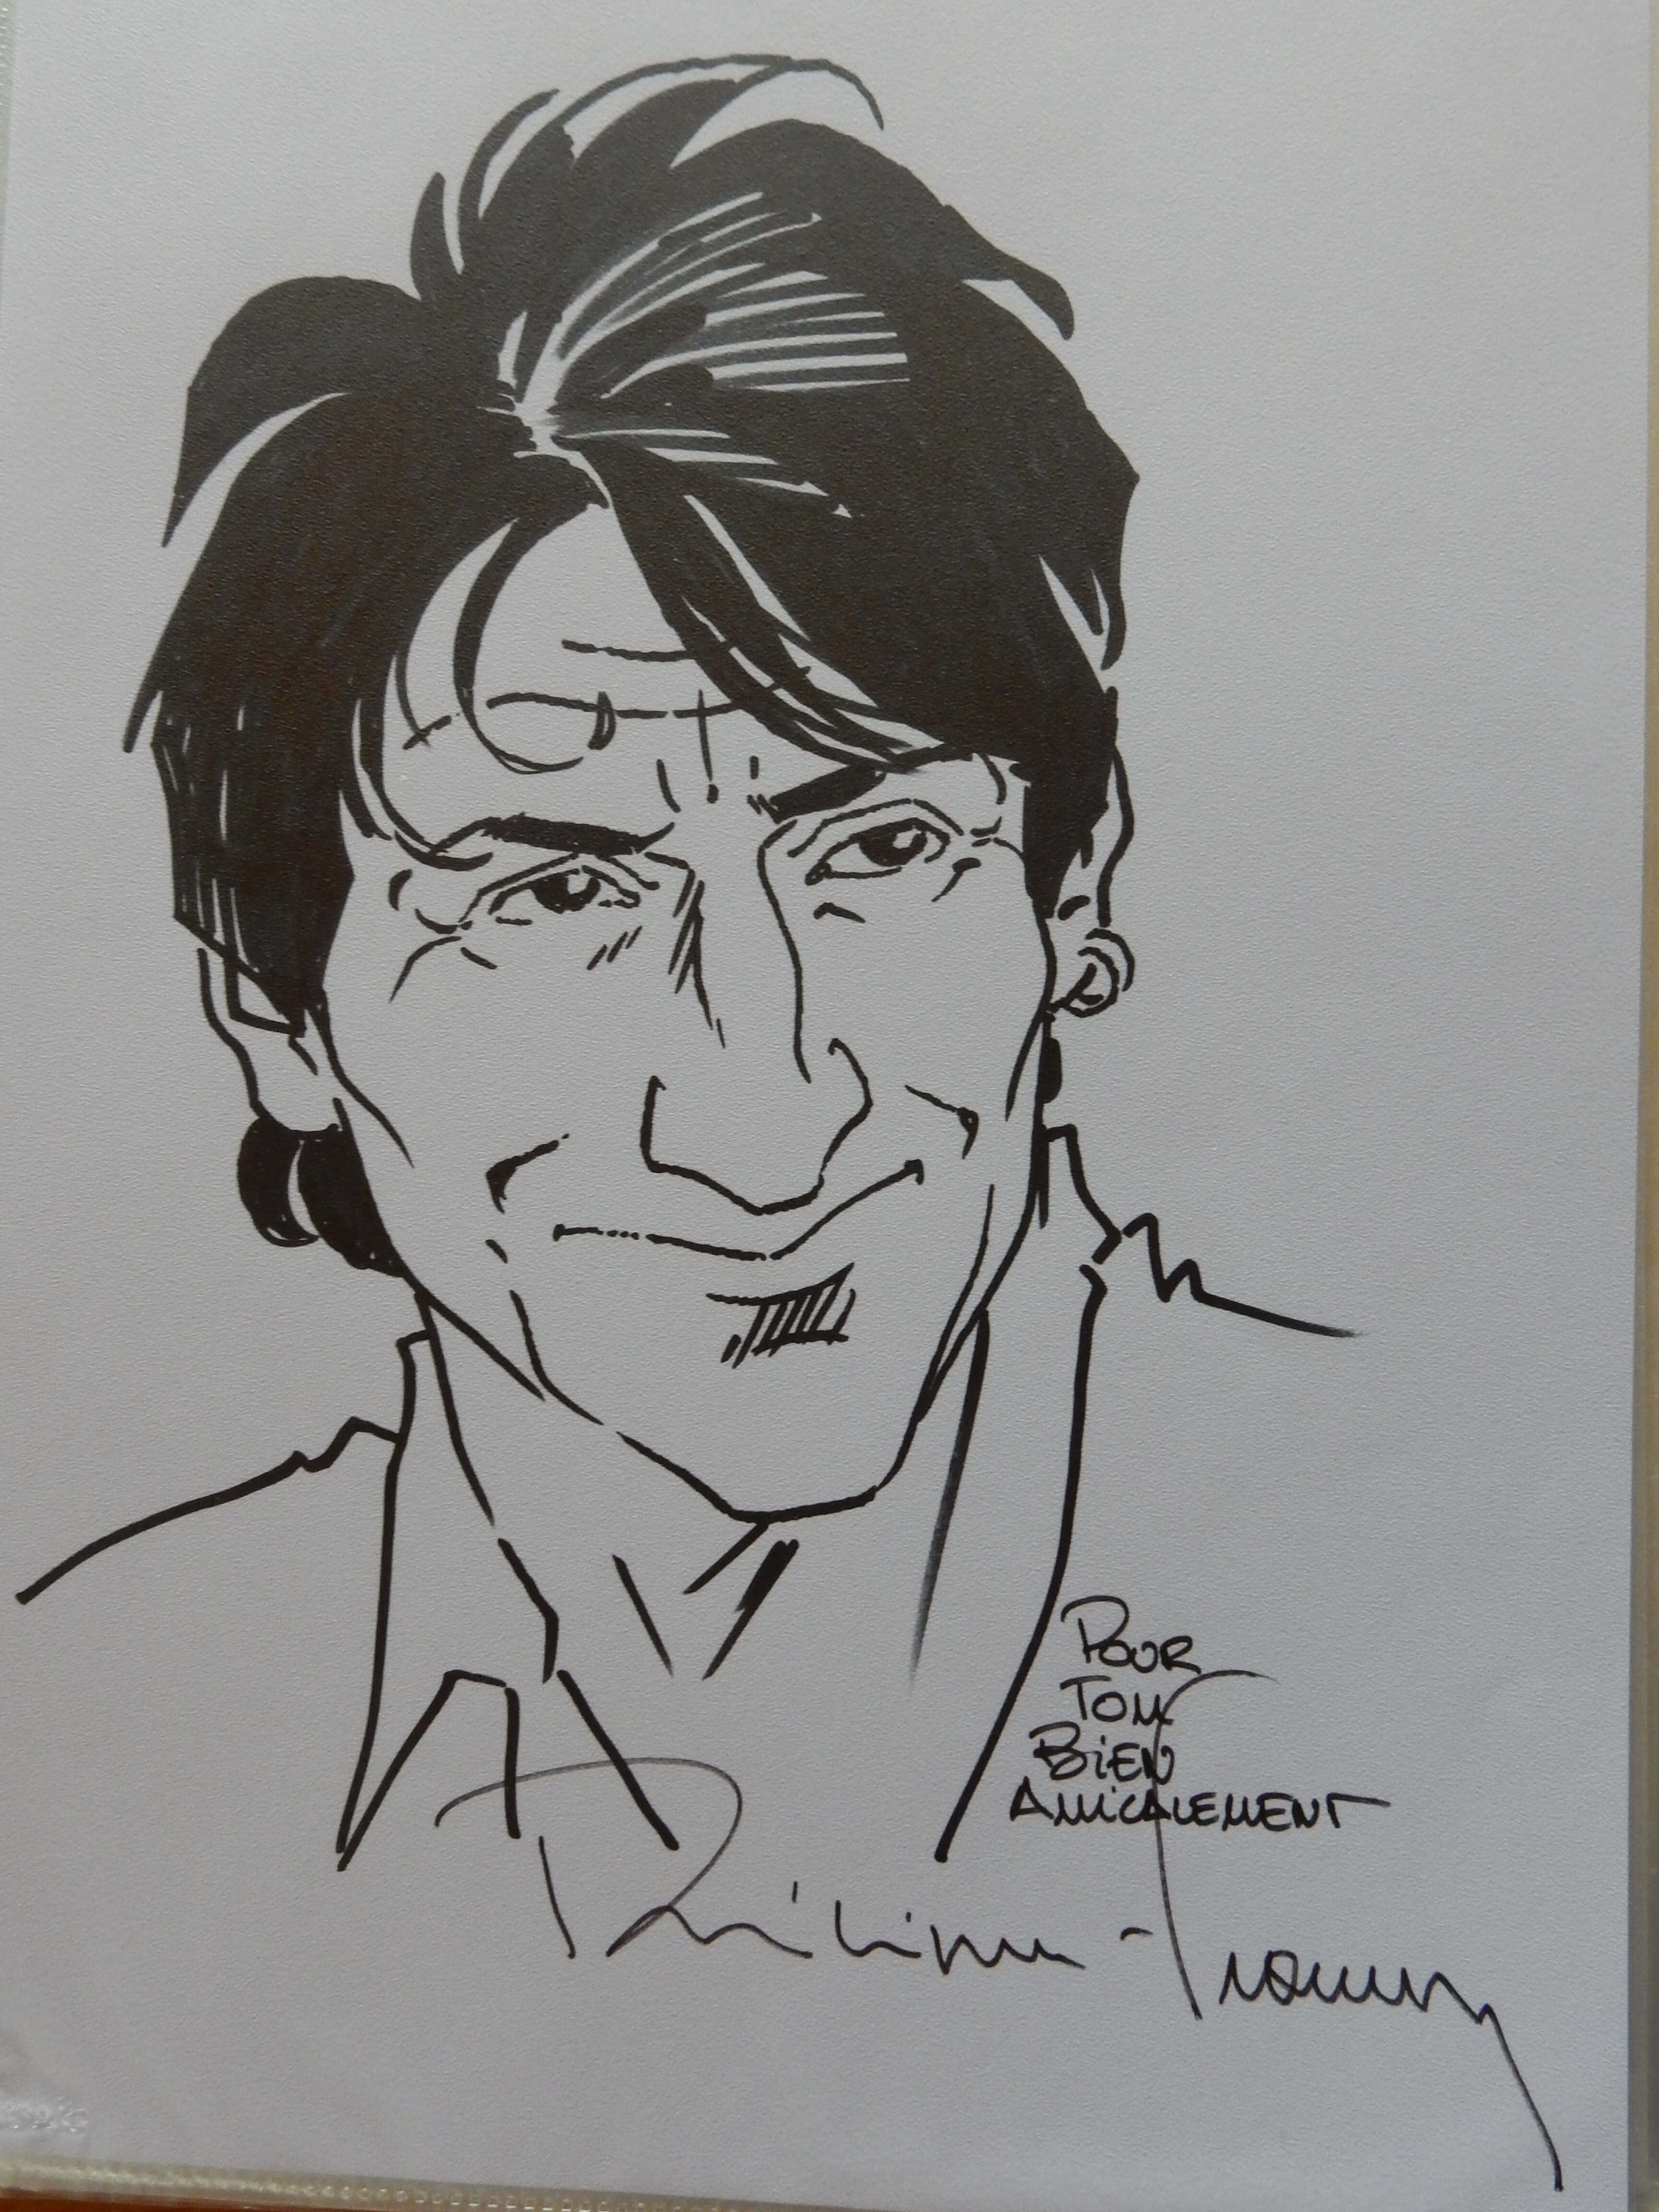 POUR
TOM
BIEN
AMICALEMENT
Philippe Francq